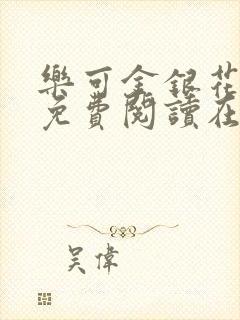 樂可金銀花
免費閱讀在
吴偉